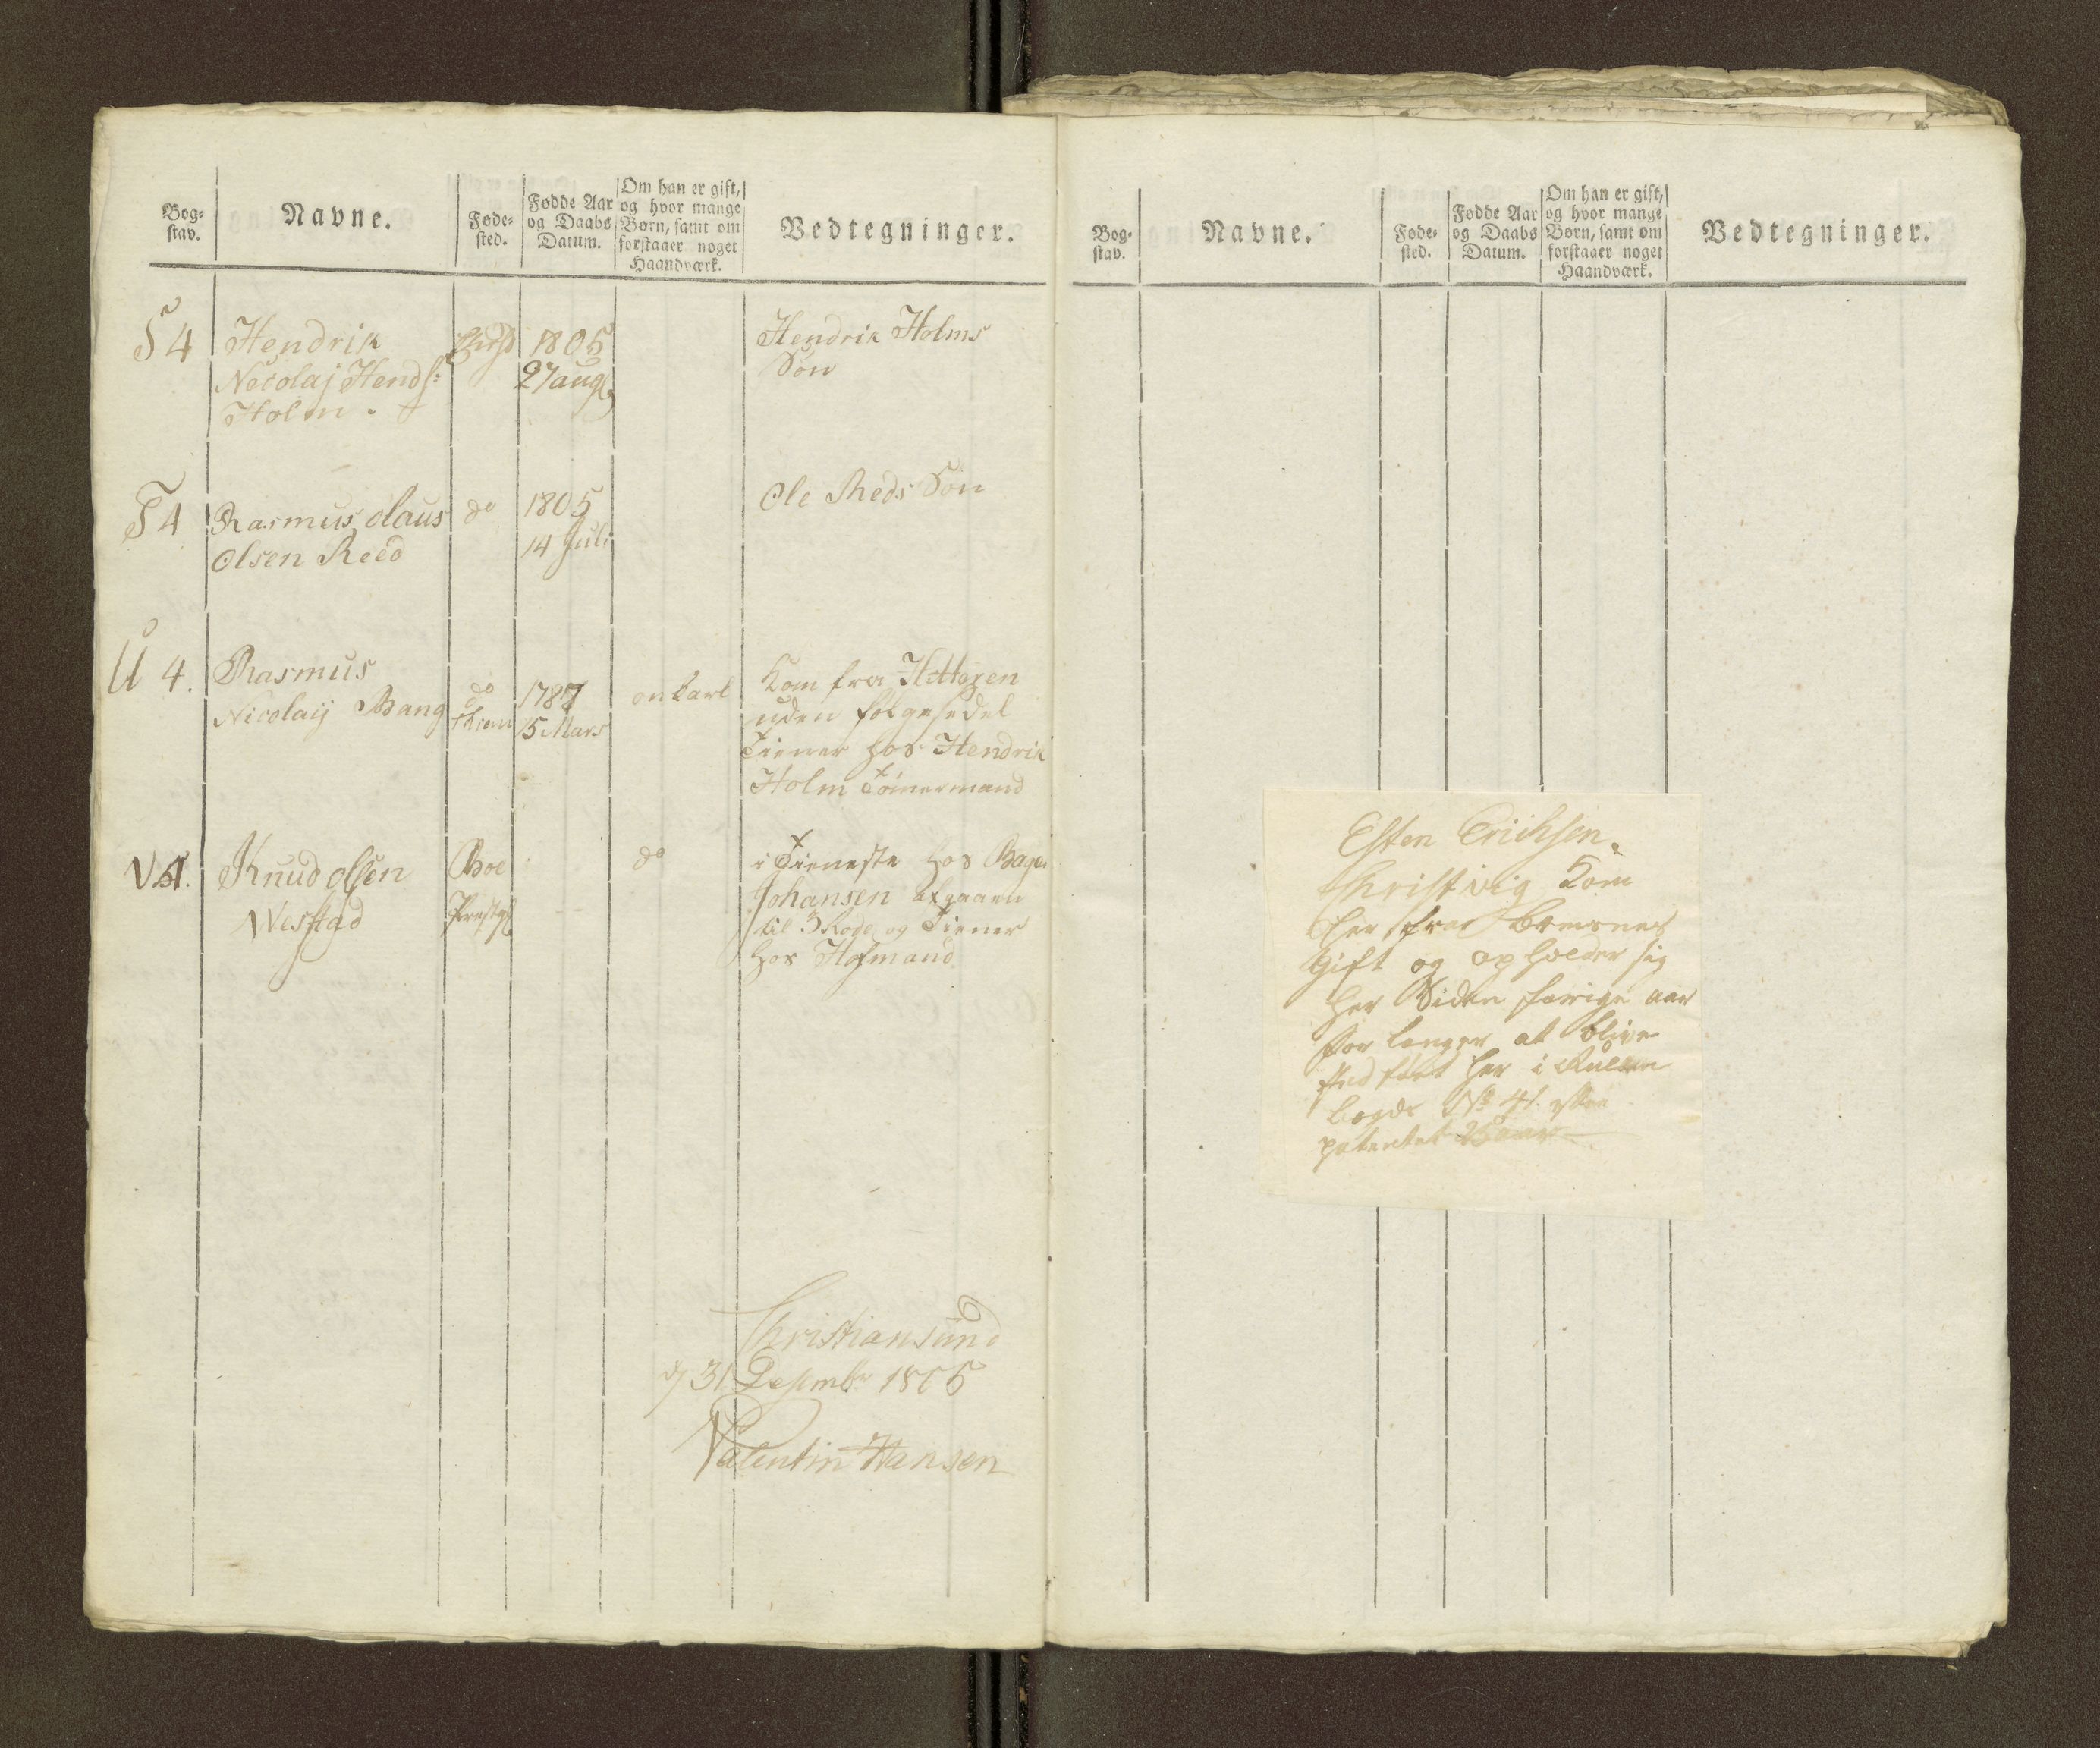 Bog-
stav.
Navne.
Føde-
sted.
Fødde Aar
og Daabs
Datum.
Om han er gift,
og hvor mange
Børn, samt om
forstaaer noget
Haandværk.
Vedtegninger.
S 4
Hendrik
Necolaj Hends:
Holm.
1805
27 aug
Hendrik Holms
Søn
T 4
Rasmus olaus
Olsen Reed
do
1805
14 Juli
Ole Reds Søn
U 4.
Rasmus
Nicolaij Bang
do
1787
15 Mars
onkarl
Kom fra Hitteren
uden følgesedel
Tiener hos Hendrik
Holm Tømermand
V 4.
Knud olsen
Westad
Boe
Prestg
do
i Tieneste hos Bager
Johansen afgaaen
til 3 Rode og Tiener
hos Hofmand
Christiansund
d 31 Desembr 1805
Valentin Hansen
Bog-
stav.
Navne.
Føde-
sted.
Fødde Aar
og Daabs
Datum.
Om han er gift,
og hvor mange
Børn, samt om
forstaaer noget
Haandværk.
Vedtegninger.
Esten Erichsen
Christvig Kom
her fra Bremsnes
Gift og opholder sig
her Siden forrige aar
for langer at blive
ført her i Rullen
No 41
patentet